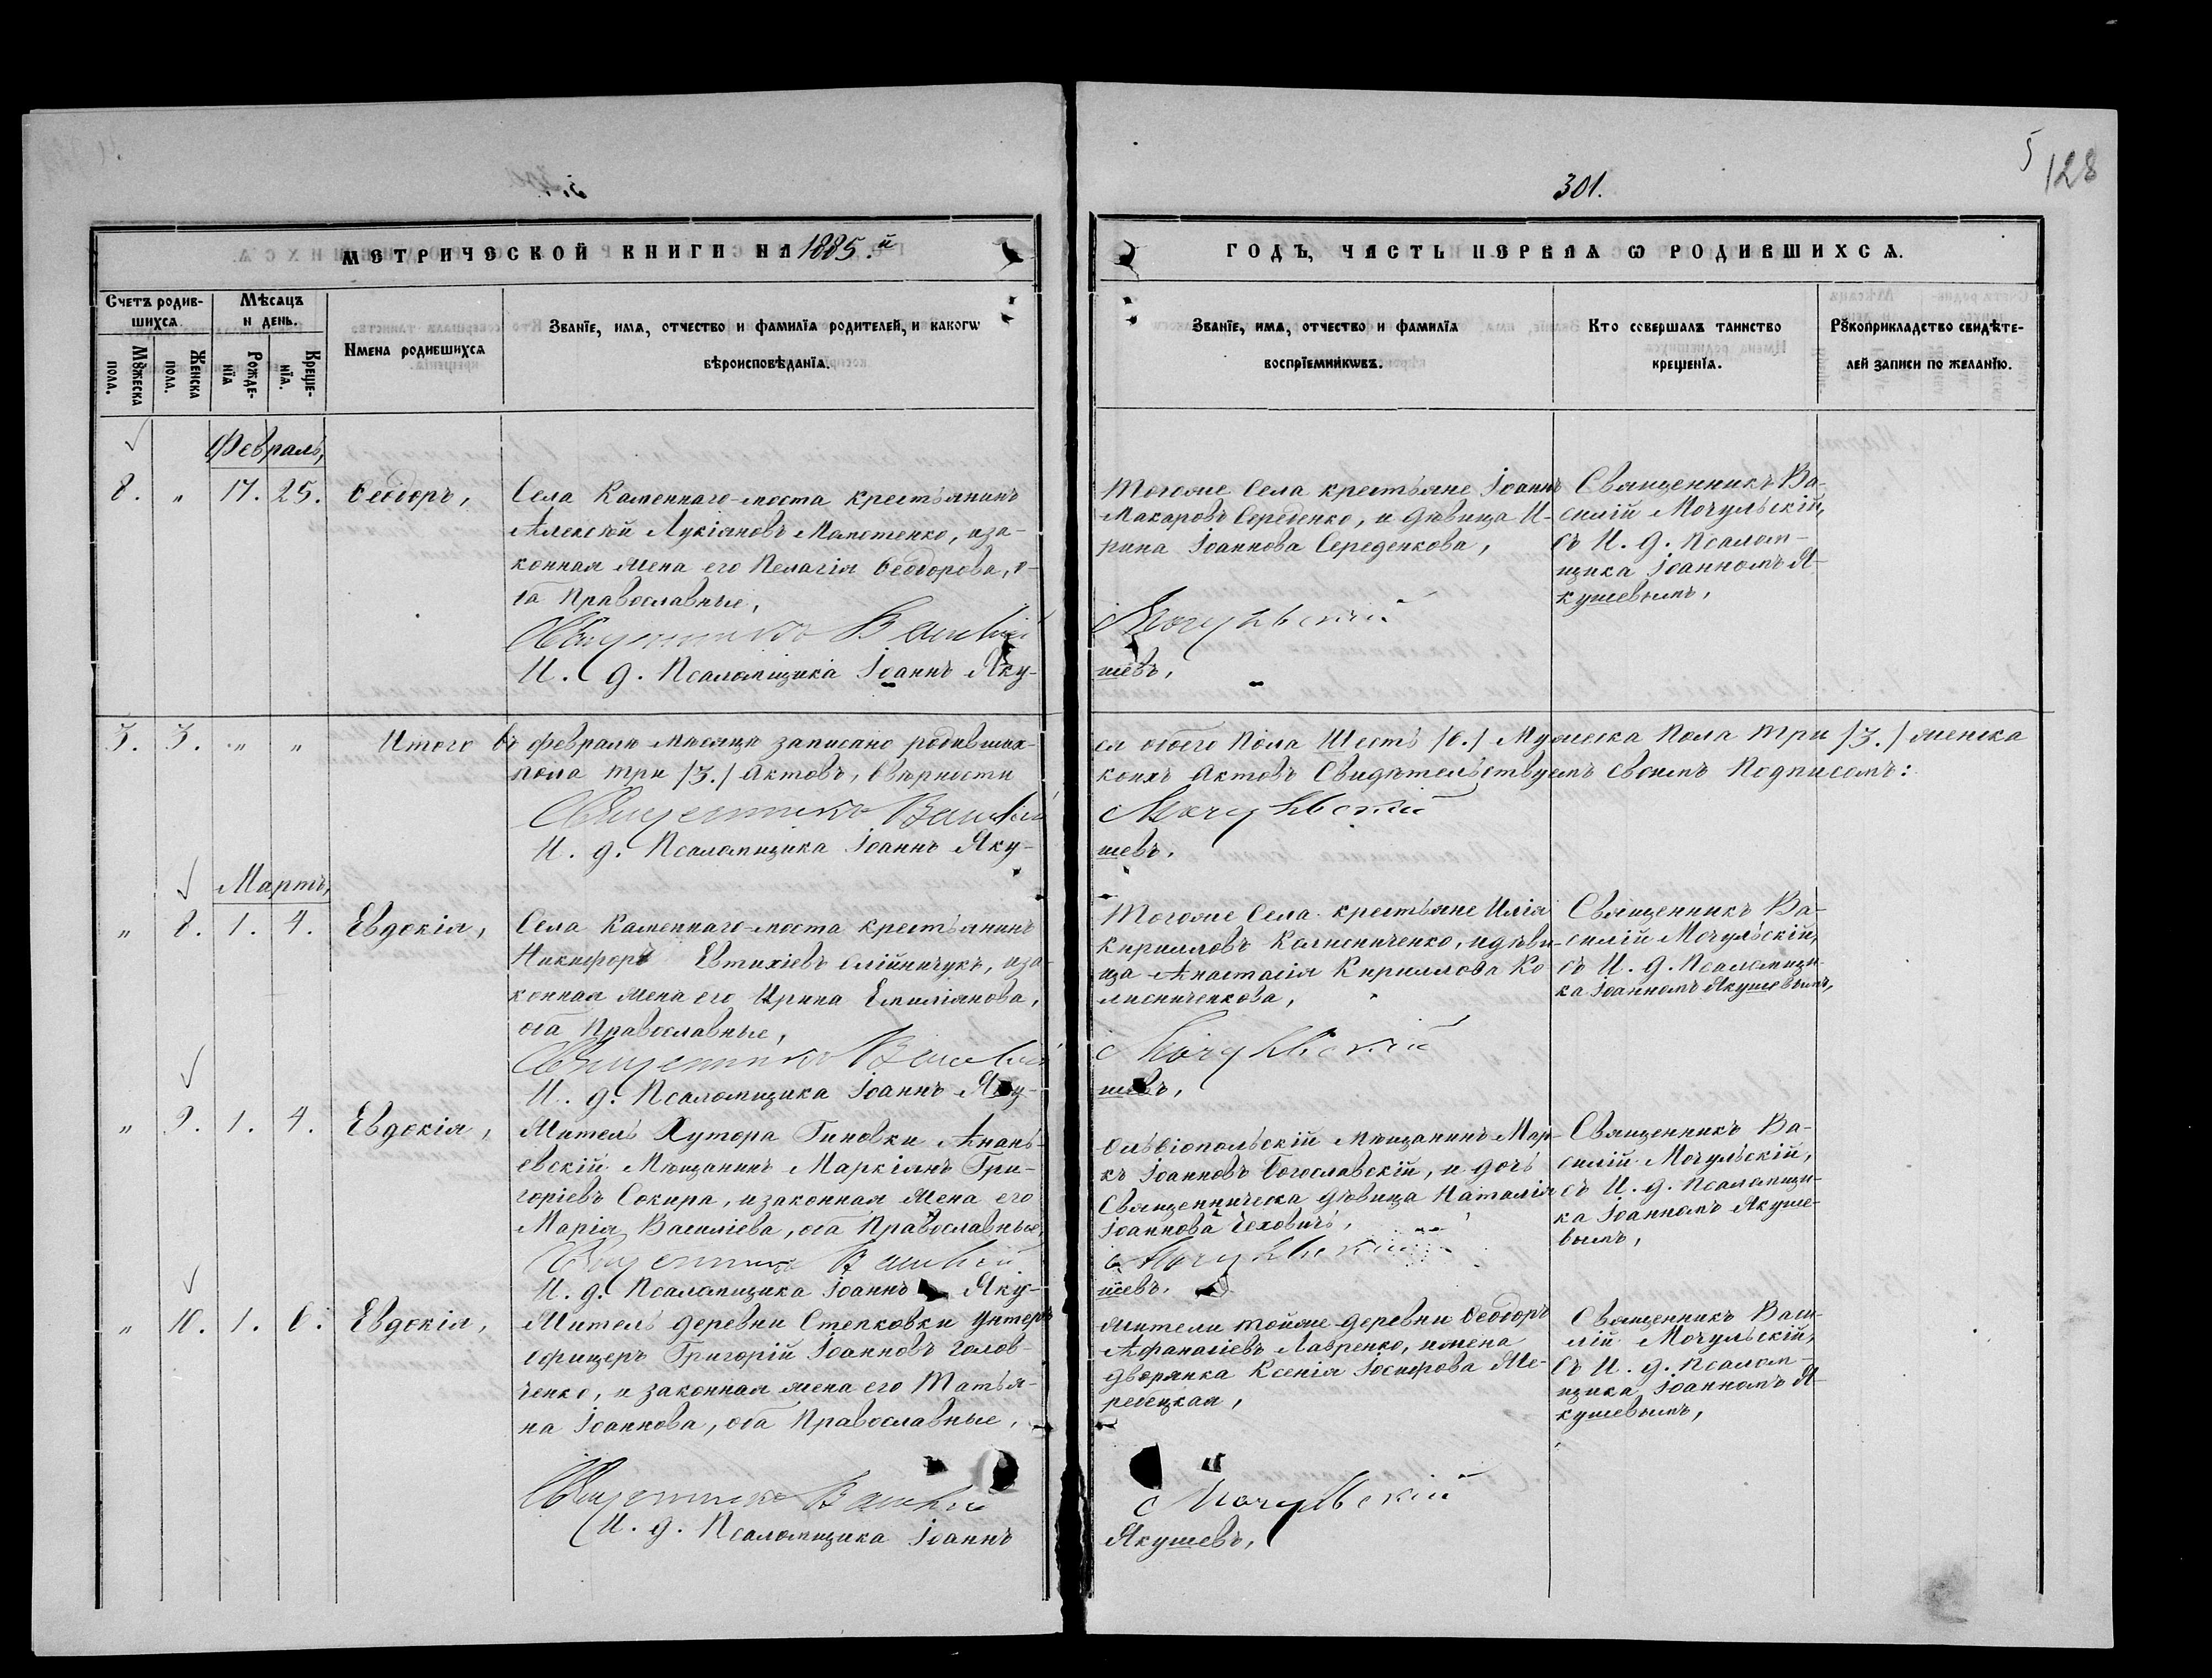 301.
5
128
МЕТРИЧЕСКОЙ КНИГИ НА 1885.й
ГОДЪ, ЧАСТЬ ПЕРВАЯ Ѡ РОДИВШИХСѦ.
Счетъ родив-
шихсѧ.
Мѣсѧцъ
и день.
Мꙋжеска
пола.
Женска
пола.
Рожде-
нїѧ
Креще-
нїѧ.
Имена родившихсѧ
Званїе, имѧ, отчество и фамилїѧ родителей, и какогѡ
вѣроисповѣданїѧ.
Званїе, имѧ, отчество и фамилїѧ
воспрїемникѡвъ.
Кто совершалъ таинство
крещенїѧ.
Рꙋкоприкладство свидѣте-
лей записи по желанїю.
Февраль,
8. „ 17. 25. Ѳеодоръ,
Села Каменнаго-моста крестьянинъ
Алексѣй Лукіяновъ Мапотенко, иза-
конная жена его Пелагія Ѳеодорова, о-
ба Православные,
Священникъ Василій
И. д. Псаломщика Іоаннъ Яку-
Тогоже Села крестьяне Іоаннъ
Макаровъ Середенко, и дѣвица И-
рина Іоаннова Середенкова,
Мочульскій
шевъ,
Священникъ Ва-
силій Мочульскій,
съ И. д. Псалом-
щика Іоанномъ Я-
кушевымъ,
3. 3. „ „ Итого въ февралѣ мѣсяцѣ записано родивших-
ся обоего Пола Шесть /6./ Мужеска Пола три /3./ женска
пола три /3./ Актовъ, Вѣрности
коихъ Актовъ Свидѣтельствуемъ своимъ Подписомъ:
Священникъ Василій
Мочульскій
И. д. Псаломщика Іоаннъ Яку-
шевъ.
Мартъ,
„ 8. 1. 4. Евдокія,
Села Каменнаго-моста крестьянинъ
Никифоръ Евтихіевъ Олійничукъ, иза-
конная жена его Ирина Емиліянова,
оба Православные,
Священникъ Василій
И. д. Псаломщика Іоаннъ Яку-
Тогоже Села крестьяне Илія
Кирилловъ Колисниченко, идѣви-
ца Анастасія Кириллова Ко-
лисниченкова,
Мочульскій
шевъ,
Священникъ Ва-
силій Мочульскій,
съ И. д. Псаломщи-
ка Іоанномъ Якушевымъ,
„ 9. 1. 4. Евдокія,
Житель Хутора Гиновки Анань-
евскій Мѣщанинъ Маркіянъ Гри-
горіевъ Сокира, изаконная жена его
Марія Василіева, оба Православные,
Священникъ Василій
И. д. Псаломщика Іоаннъ Яку-
Ольвіопольскій Мѣщанинъ Мар-
къ Іоанновъ Богославскій, и дочь
Священническа дѣвица Наталія
Іоаннова Чеховичъ,
Мочульскій
шевъ.
Священникъ Ва-
силій Мочульскій,
съ И. д. Псаломщи-
ка Іоанномъ Якуше-
вымъ,
„ 10. 1. 6. Евдокія,
Житель деревни Степковки Унтеръ
Офицеръ Григорій Іоанновъ Голов-
ченко, и законная жена его Татья-
на Іоаннова, оба Православные,
Священникъ Василій
И. д. Псаломщика Іоаннъ
Жители тойже деревни Ѳеодоръ
Афанасіевъ Лавренко, ижена
дворянка Ксенія Іосифова Же-
ребецкая,
Мочульскій
Якушевъ,
Священникъ Васи-
лій Мочульскій,
съ И. д. Псалом-
щика Іоанномъ Я-
кушевымъ,